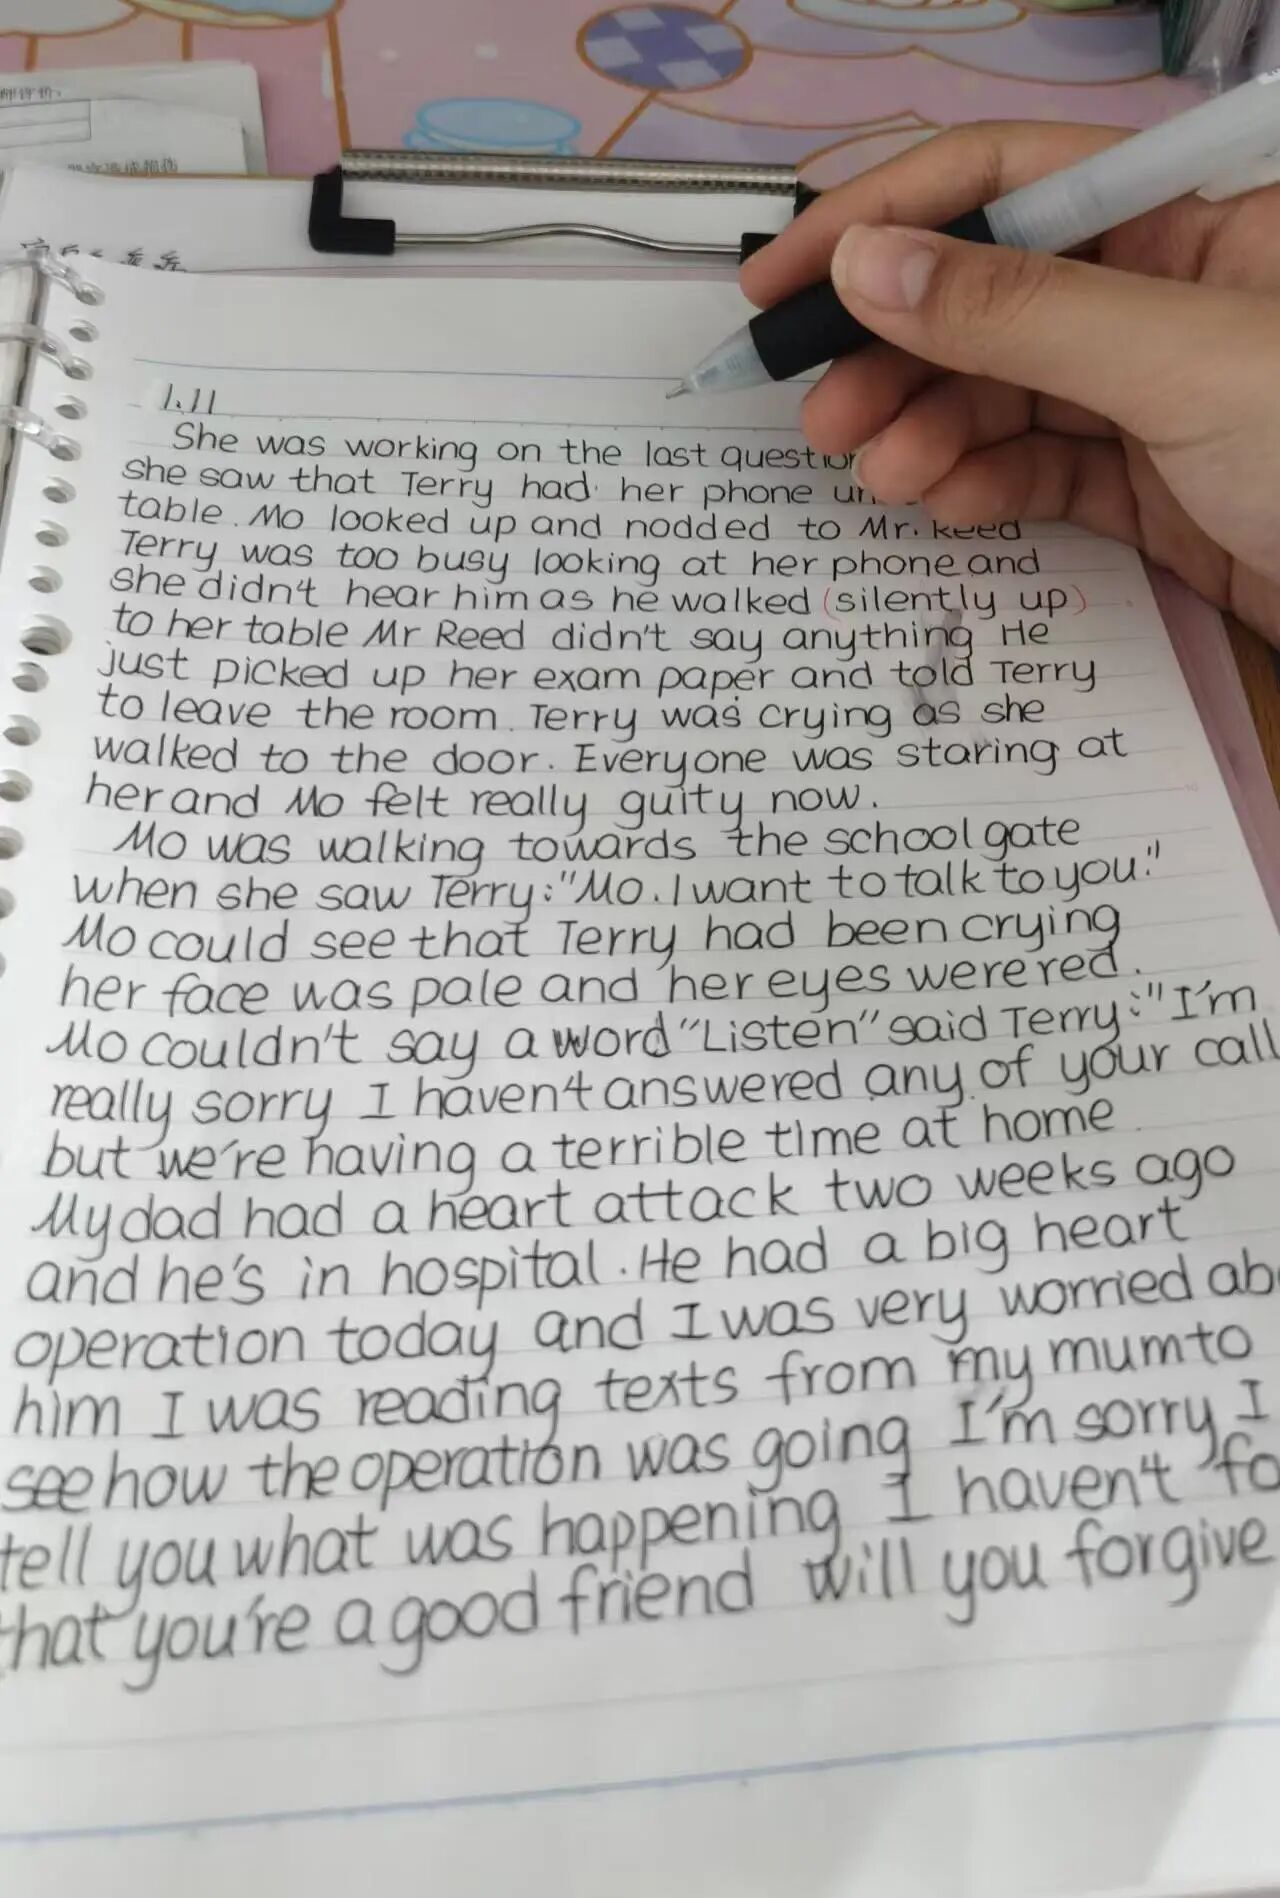 师评价:
1.11
She was working on the last
she saw that Terry had her phone
table. Mo looked up and nodded to Mr. Reed
Terry was too busy looking at her phone and
she didn't hear him as he walked (silently up)
to her table Mr Reed didn't say anything He
just picked up her exam paper and told Terry
to leave the room. Terry was crying as she
walked to the door. Everyone was staring at
her and Mo felt really guity now.
Mo was walking towards the school gate
when she saw Terry:"Mo. I want to talk to you."
Mo could see that Terry had been crying
her face was pale and her eyes were red.
Mo couldn't say a word "Listen" said Terry:"I'm
really sorry I haven't answered any of your call
but we're having a terrible time at home
My dad had a heart attack two weeks ago
and he's in hospital. He had a big heart
operation today and I was very worried
him I was reading texts from my mum to
see how the operation was going I'm sorry I
tell you what was happening I haven't
that you're a good friend will you forgive